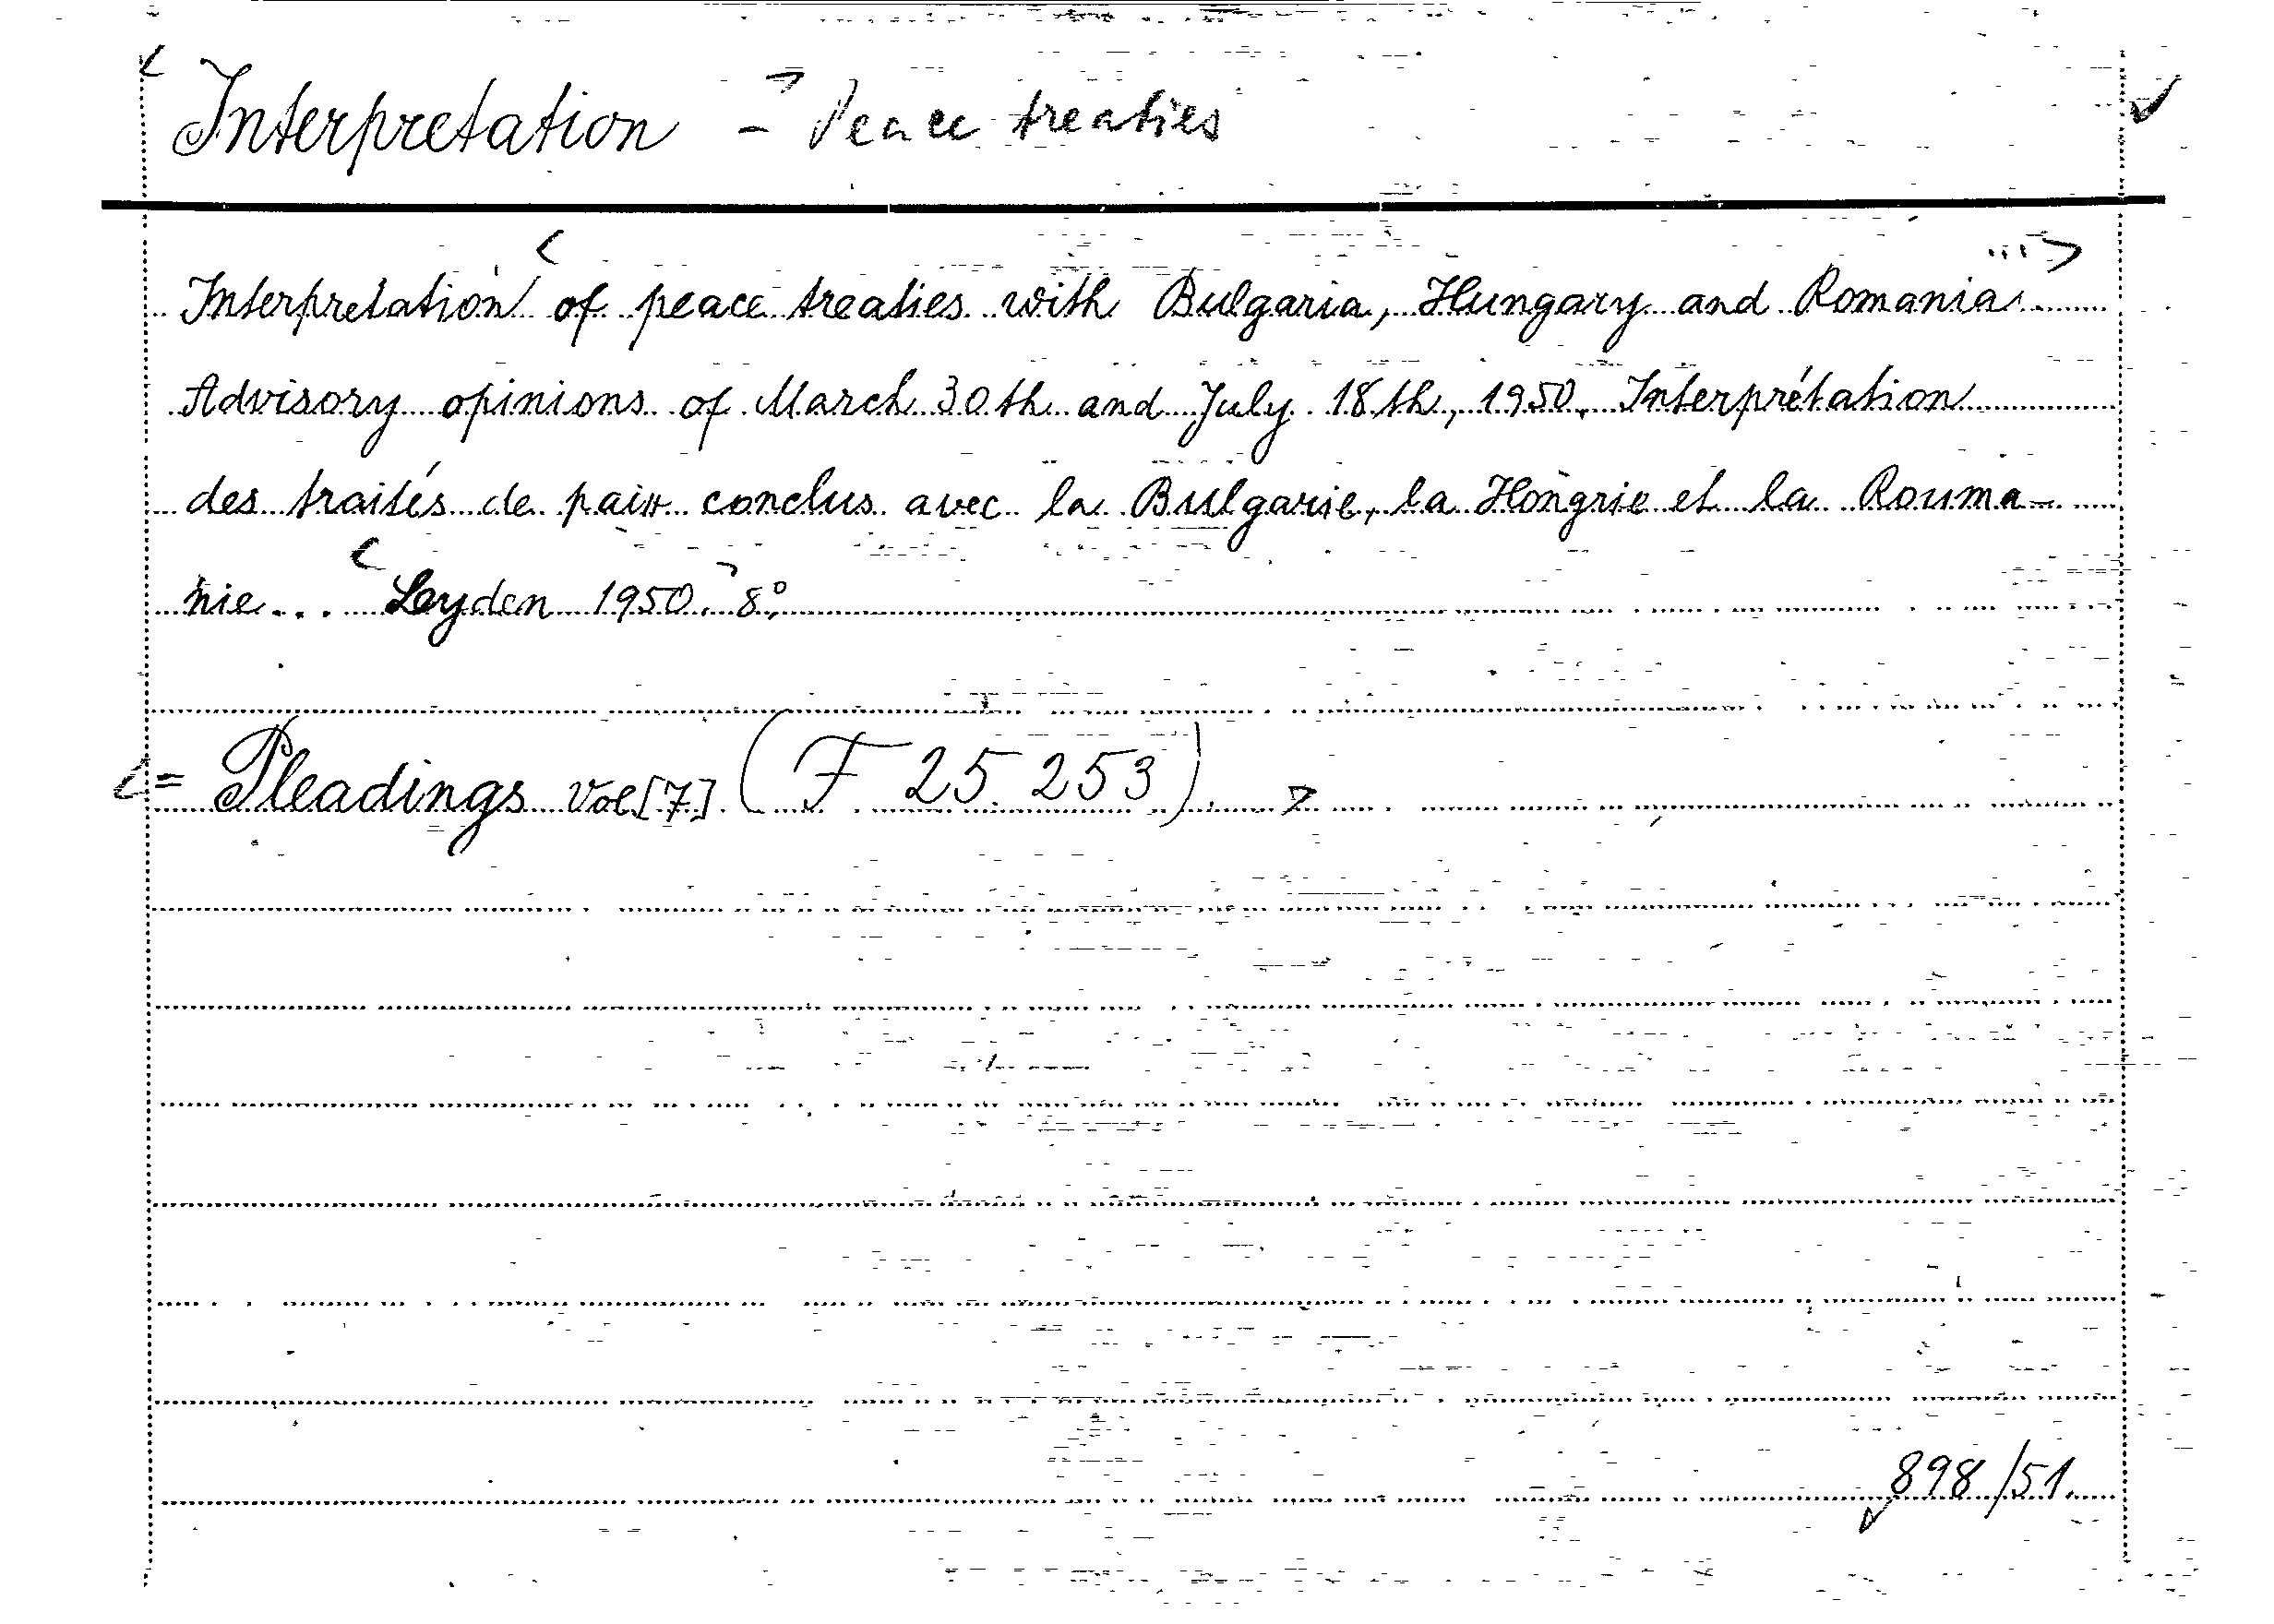 Interpretation - Peace treaties
Interpretation of peace treaties with Bulgaria, Hungary and Romania
Advisory opinions of March 30th and July 18th, 1950. Interprétation
des traités de paix conclus avec la Bulgarie, la Hongrie et la Rouma-
nie... Leyden 1950. 8°.
= Pleadings vol[7] (F 25 253)
898/51.